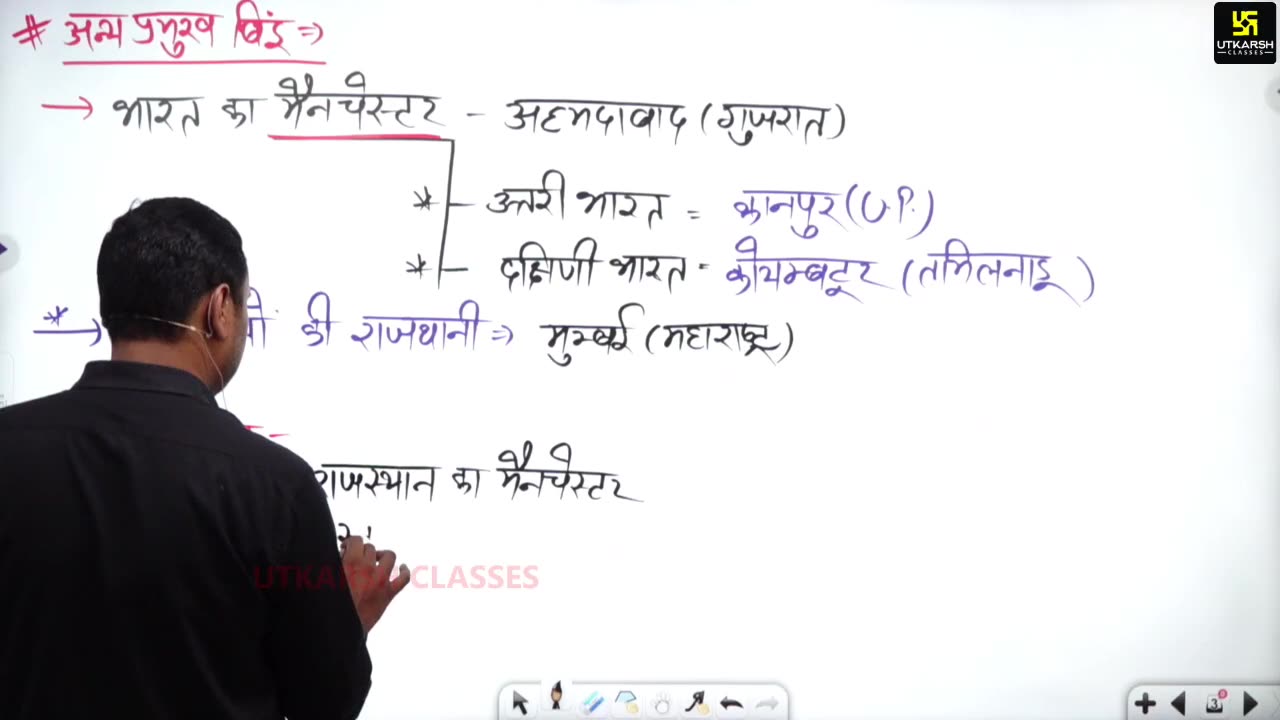 # अन्य प्रमुख बिंदु ⇒
UTKARSH
CLASSES
→ भारत का मैनचेस्टर - अहमदाबाद (गुजरात)
* उत्तरी भारत = कानपुर (U.P.)
* दक्षिणी भारत - कोयम्बटूर (तमिलनाडू)
* → की राजधानी ⇒ मुम्बई (महाराष्ट्र)
राजस्थान का मैनचेस्टर
UTKARSH CLASSES
3